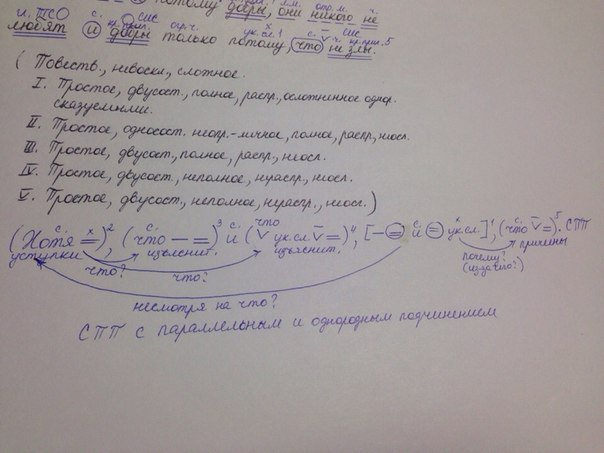 потому добры, они никого не
сущ. ч.
и. ПСО с. сис огр.ч. ук.сл. 1 с. ч. кр.прил. 5
любят и добры только потому, что не злы.
(Повеств., невоскл., сложное.
I. Простое, двусост., полное, распр., осложненное однор.
сказуемыми.
II. Простое, односост. неопр.-личное, полное, распр., неосл.
III. Простое, двусост., полное, распр., неосл.
IV. Простое, двусост., неполное, нераспр., неосл.
V. Простое, двусост., неполное, нераспр., неосл.)
(Хотя =)2, (что – =)3 и (V ук.сл. V =)4, [– = и = ук.сл.]1, (что V =)5. СПП
уступки изъяснит. изъяснит. почему? причины
что? что? (из-за чего?)
несмотря на что?
СПП с параллельным и однородным подчинением